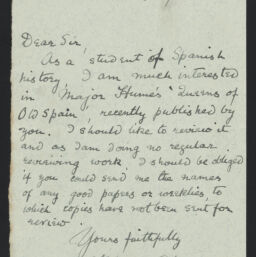 Dear Sir,
As a student of Spanish
history, I am much interested
in Major Hume's "Queens of
Old Spain", recently published by
you. I should like to review it
and as I am doing no regular
reviewing work I should be obliged
if you could send me the names
of any good papers or weeklies, to
which copies have not been sent for
review.
Yours faithfully